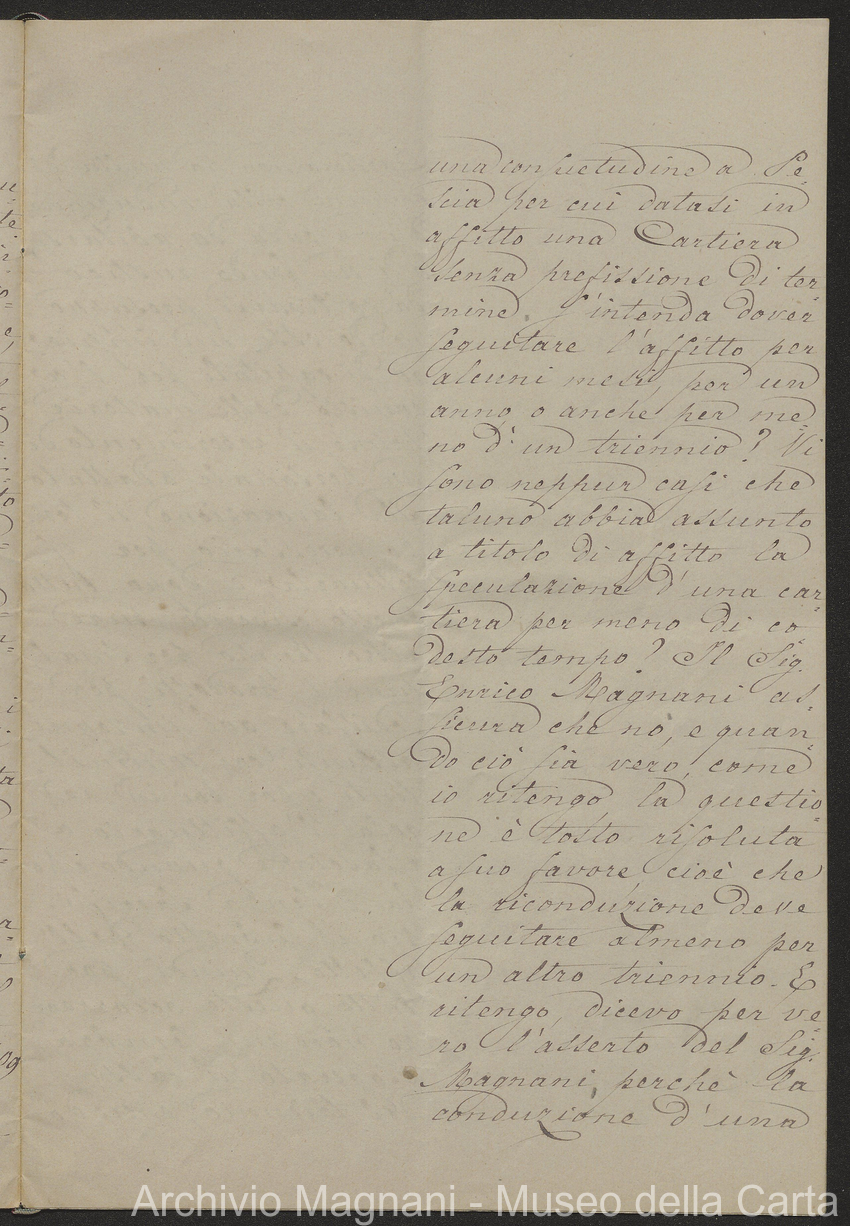 una consuetudine a Pe-
scia per cui datasi in
affitto una Cartiera
senza prefissione di ter-
mine s'intenda dover
seguitare l'affitto per
alcuni mesi, per un
anno, o anche per me-
no d'un triennio? Vi
sono neppur casi che
taluno abbia assunto
a titolo di affitto la
speculazione d'una car-
tiera per meno di co-
desto tempo? Il Sig.
Enrico Magnani as-
sicura che nò, e quan-
do ciò sia vero, come
io ritengo, la questio-
ne è tosto risoluta
a suo favore cioè che
la riconduzione deve
seguitare almeno per
un altro triennio. E
ritengo, dicevo per ve-
ro l'asserto del Sig.
Magnani, perchè la
conduzione d'una
Archivio Magnani - Museo della Carta